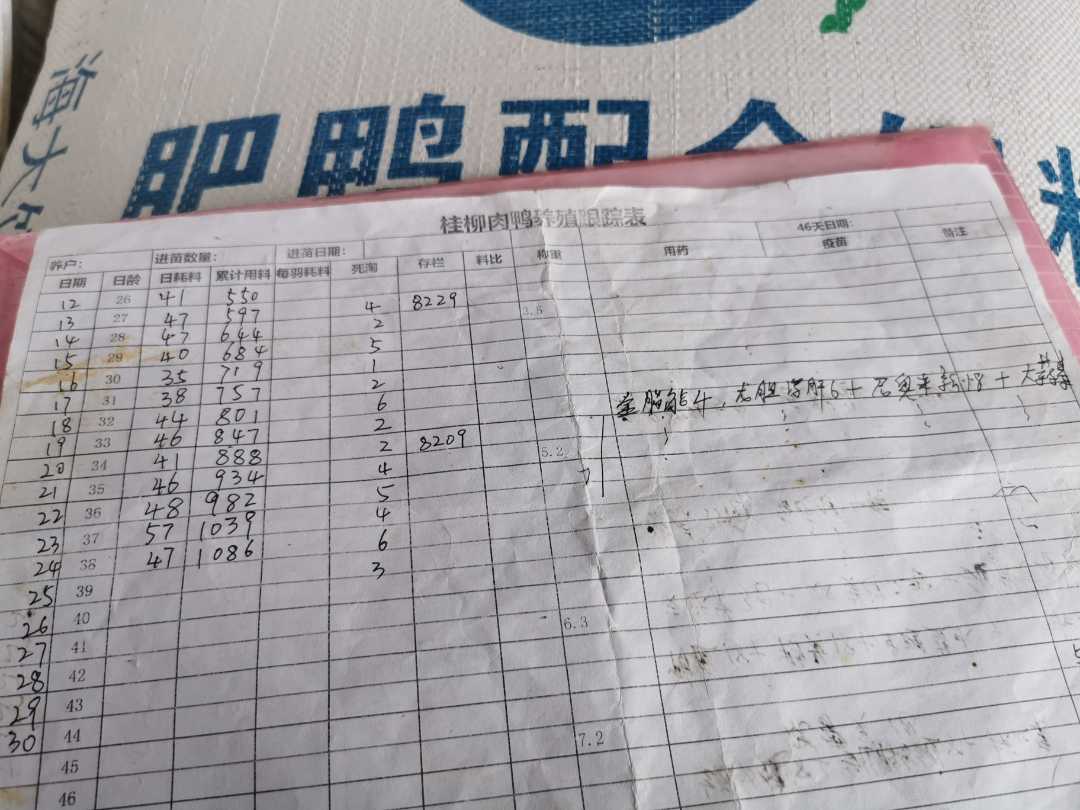 海大
肥鸭配合
桂柳肉鸭养殖跟踪表
养户: 进苗数量: 进苗日期: 46天日期:
日期 日龄 日耗料 累计用料 每羽耗料 死淘 存栏 料比 称重 用药 疫苗 备注
12 26 41 550 4 8229
13 27 47 597 2 3.5
14 28 47 644 5
15 29 40 684 1
16 30 35 719 2
17 31 38 757 6
18 32 44 801 2
19 33 46 847 2 8209
20 34 41 888 4 5.2
21 35 46 934 5
22 36 48 982 4
23 37 57 1039 6
24 38 47 1086 3
25 39
26 40 6.3
27 41
28 42
29 43
30 44 7.2
45
46